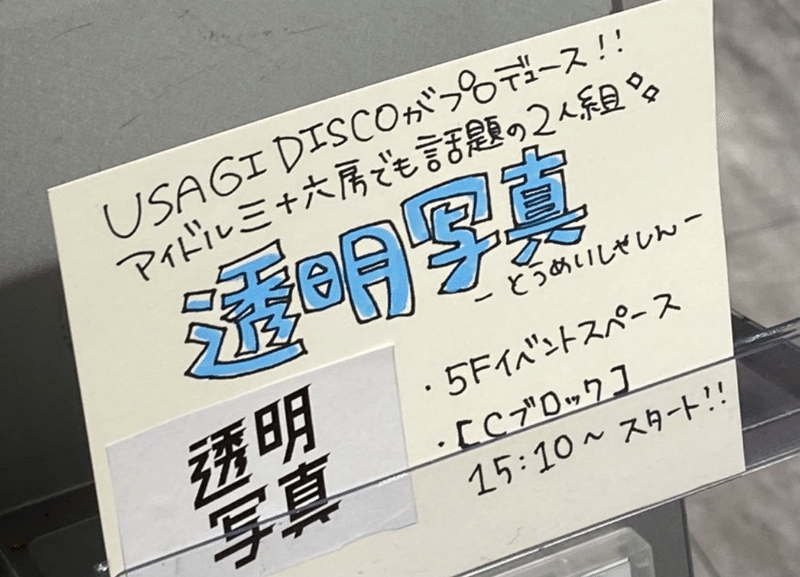 USAGI DISCOがプロデュース!!
アイドル三十六房でも話題の2人組
透明写真
-とうめいしゃしん-
・5Fイベントスペース
・[Cブロック]
15:10～スタート!!
透明
写真